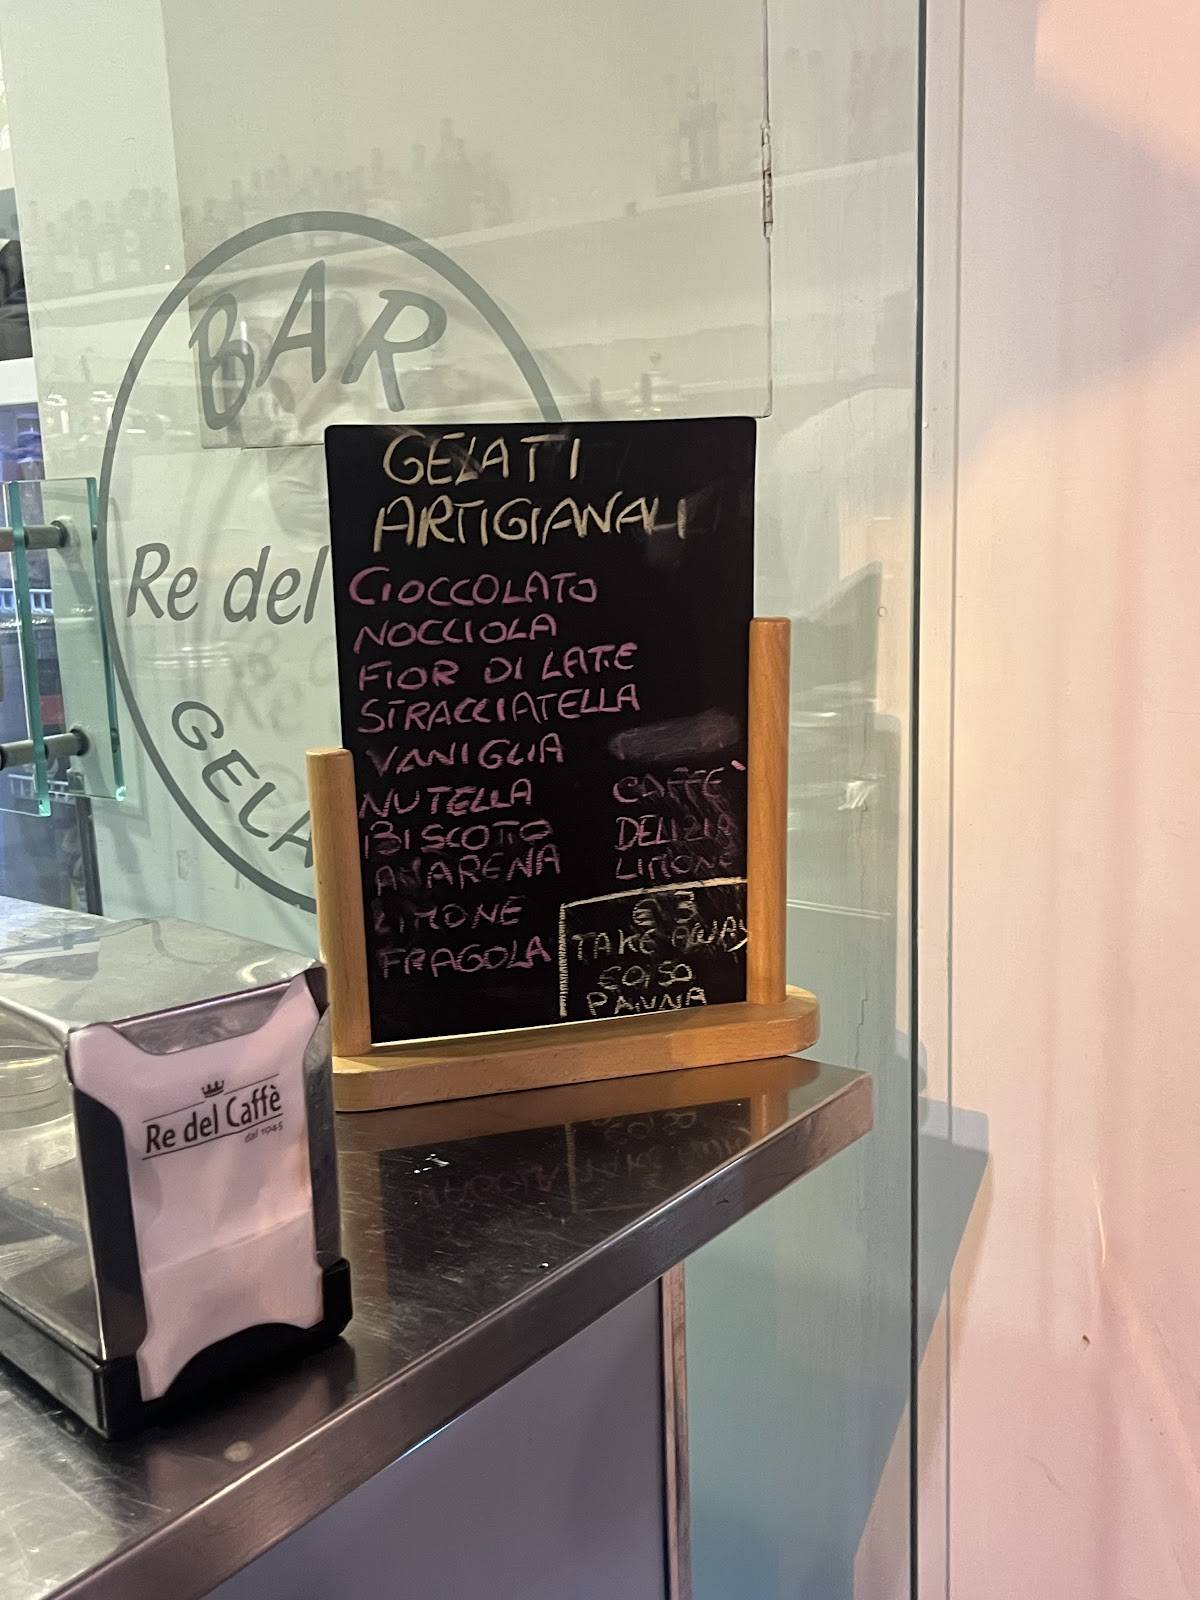 BAR
Re del
GELA
GELATI
ARTIGIANALI
CIOCCOLATO
NOCCIOLA
FIOR DI LATTE
STRACCIATELLA
VANIGLIA
NUTELLA
BISCOTTO
AMARENA
LIMONE
FRAGOLA
CAFFE`
DELIZIA
LIMONE
€ 3
TAKE AWAY
€0,50
PANNA
Re del Caffè
dal 1945